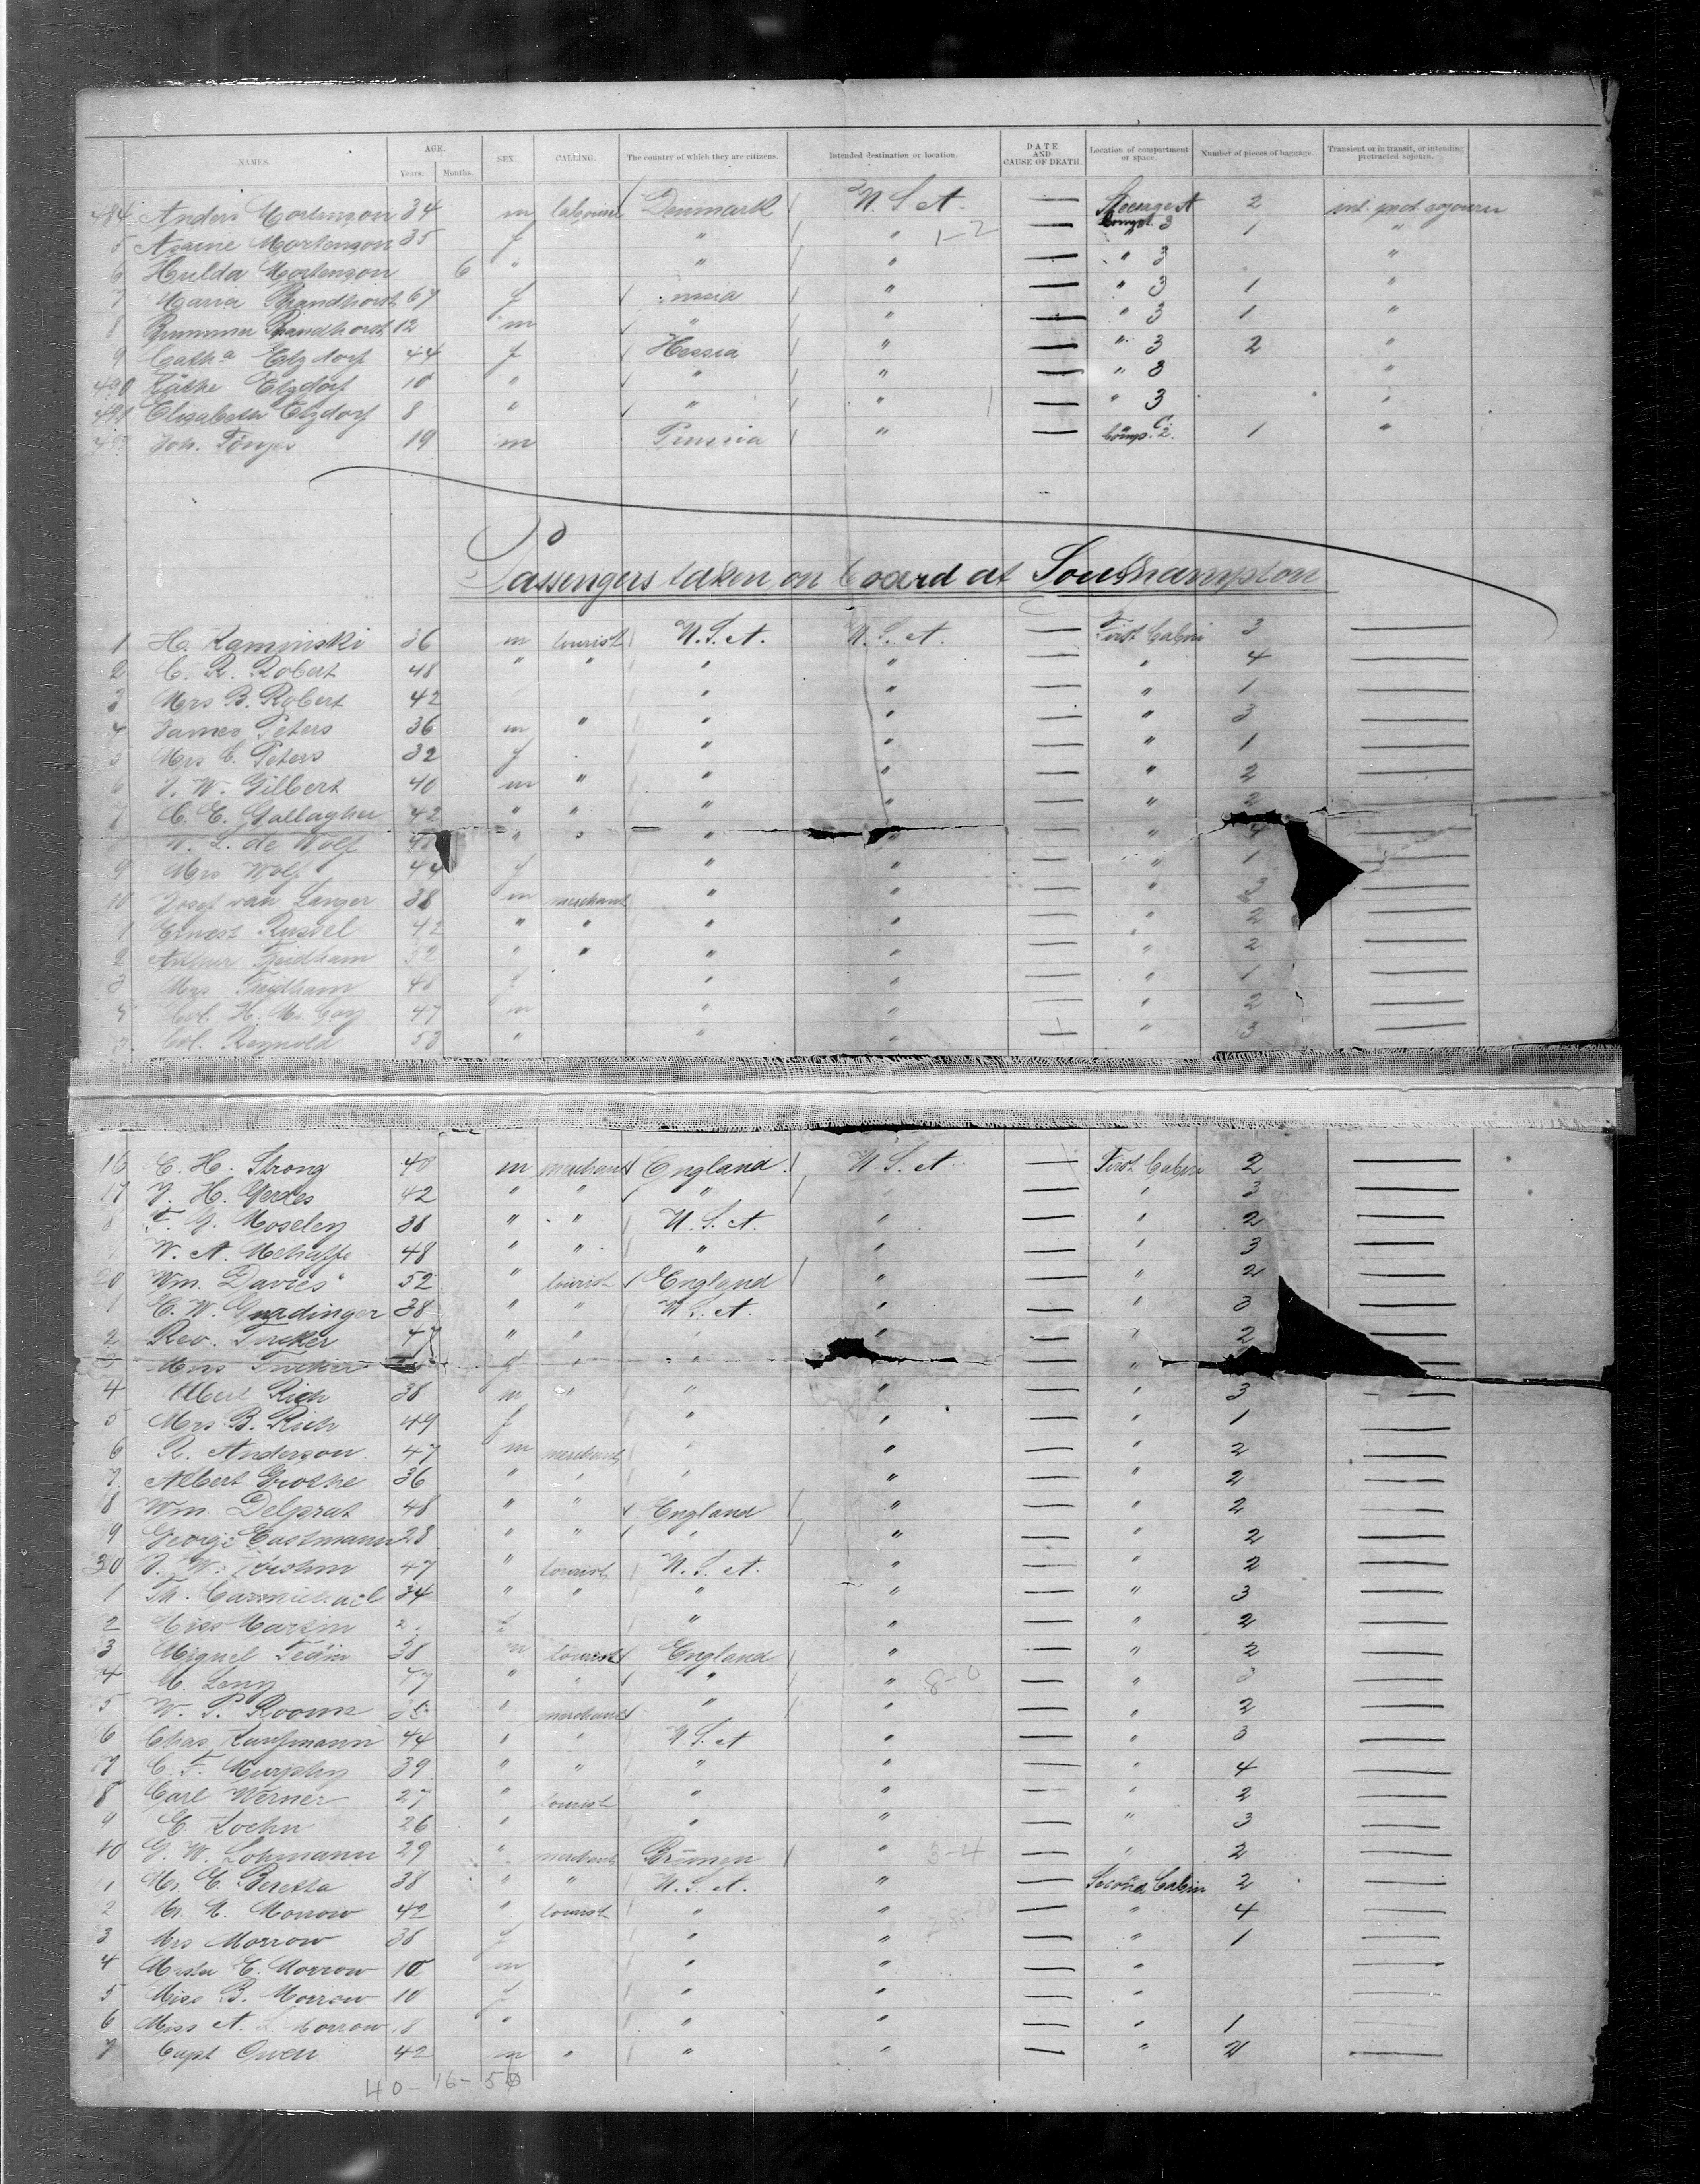 NAMES. AGE. Years. Months. SEX. CALLING. The country of which they are citizens. Intended destination or location. DATE AND CAUSE OF DEATH. Location of compartment or space. Number of pieces of baggage. Transient or in transit, or intending protracted sojourn.
484 Anders Mortenson 34 m labourer Denmark U.S.A. — Steerage A Compt. 3 2 int. prot. sojourn
5 Mortenson 35 f " " 1-2 — " 3 1 "
6 Hulda Mortenson 6 " " " — " 3 "
7 Maria Brandhorst 67 f " — " 3 1 "
8 Brandhorst 12 m " " — " 3 1 "
9 Cath.a Etzdorf 44 f Hessia " — " 3 2 "
490 Käthe Etzdorf 10 " " " — " 3 "
491 Elisabeth Etzdorf 8 " " " — " 3 "
Joh. Tönjes 19 m Prussia " — Comp. C. 2. 1 "
Passengers taken on board at Southampton
1 H. Kaminski 36 m tourist U.S.A. U.S.A. — First Cabin 3 —
2 C. R. Robert 48 " " " " — " 4 —
3 Mrs B. Robert 42 " " — " 1 —
4 James Peters 36 m " " " — " 3 —
5 Mrs C. Peters 32 f " " — " 1 —
6 J. W. Gilbert 40 m " " " — " 2 —
7 C. E. Gallagher 42 " " " " — " 2 —
W. L. de Wolf " " " " — " 4 —
9 Mrs Wolf 44 f " " — " 1 —
10 Josef van Langer 38 m merchant " " — " 3 —
1 Ernest Russel 42 " " " " — " 2 —
2 Arthur 52 " " " " — " 2 —
3 Mrs 48 f " " — " 1 —
4 Col. H. Mc. Coy 47 m " " — " 2 —
Col. Reynold 53 " " " — " 3 —
16 E. H. Strong 48 m merchant England U.S.A. — First Cabin 2 —
17 J. H. Gerdes 42 " " " — " 3 —
8 F. G. Moseley 38 " " U.S.A. " — " 2 —
W. A. Mehaffe 48 " " " " — " 3 —
20 Wm. Davies 52 " tourist England " — " 2 —
1 C. W. Gnadinger 38 " " U.S.A. " — " 3 —
2 Rev. Tucker 47 " " " " — " 2 —
3 Mrs Tucker f " " — " —
4 Albert Rich 38 m " " " — " 3 —
5 Mrs B. Rich 49 f " " — " 1 —
6 R. Anderson 47 m merchant " " — " 2 —
7 Albert Grothe 36 " " " " — " 2 —
8 Wm. Delprat 48 " " England " — " 2 —
9 George Eastmann 28 " " " " — " 2 —
30 J. W. 47 " tourist U.S.A. " — " 2 —
1 Th. Carmichael 34 " " " " — " 3 —
2 Miss Martin f " " — " 2 —
3 Miguel 38 m tourist England " — " 2 —
4 47 " " " " — " 3 —
5 W. P. Rooms " merchant " " — " 2 —
6 Chas Kaufmann 44 " " U.S.A " — " 3 —
7 C. F. Murphy 39 " " " " — " 4 —
8 Carl Werner 27 " tourist " " — " 2 —
9 E. Koehn 26 " " " — " 3 —
40 G. W. Lohmann 29 " merchant Bremen " 3-4 — " 2 —
1 Mr. E. Beretta 38 " " U.S.A. " — Second Cabin 2 —
2 Mr. M. Morrow 42 " tourist " " — " 4 —
3 Mrs Morrow 36 f " " — " 1 —
4 Master E. Morrow 10 m " " — " —
5 Miss B. Morrow 10 f " " — " —
6 Miss A. Morrow 8 " " " — " 1 —
7 Capt Owen 42 m " " " — " 2 —
40-16-50